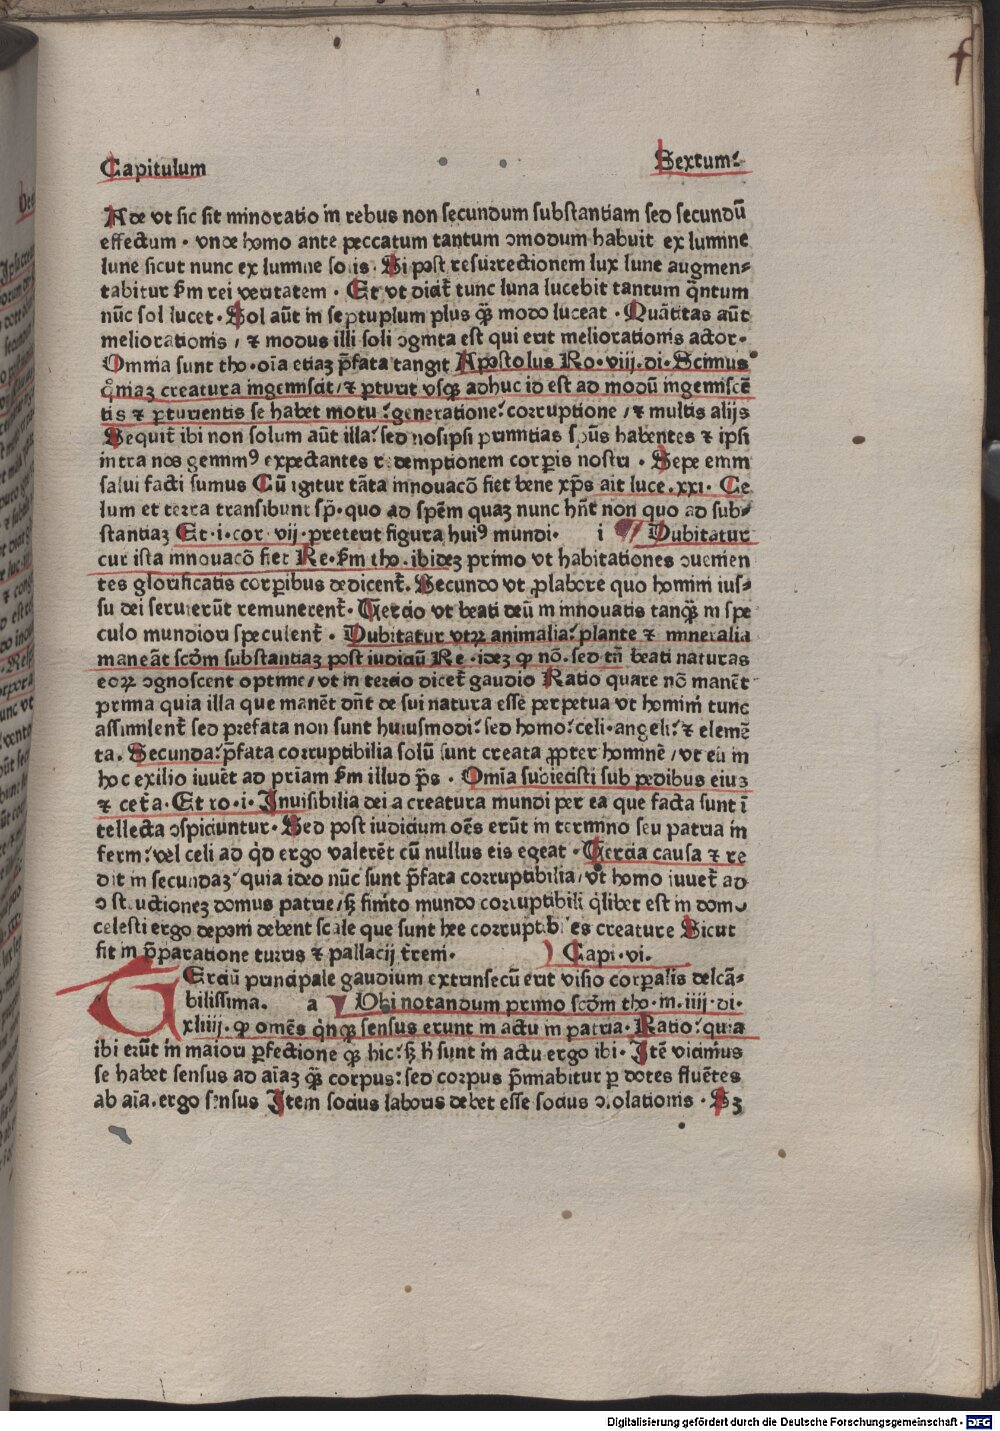 Capitulum Sextum⁊
Ade vt sic sit minoratio in rebus non secundum substantiam sed secundū
effectum · vnde homo ante peccatum tantum ↄmodum habuit ex lumine
lune sicut nunc ex lumine solis · Si post resurrectionem lux lune augmen⸗
tabitur ẜm rei veritatem · Et vt dicāt tunc luna lucebit tantum q̄ntum
nūc sol lucet · Sol aūt in septuplum plus q̄ꝫ modo luceat · Quātitas aūt
meliorationis / ⁊ modus illi soli ↄgnita est qui erit meliorationis actor ·
Omnia sunt tho · oīa etiaꝫ p̄fata tangit Apostolus Ro · viij · di · Scimus
qͦniaꝫ creatura ingemiscit / ⁊ ꝑturit vsqꝫ adhuc id est ad modū ingemiscē
tis ⁊ ꝑturientis se habet motu : generatione : corruptione / ⁊ multis alijs
Sequit̄ ibi non solum aūt illa : sed nosipsi primitias spūs habentes ⁊ ipsi
intra nos gemimꝰ expectantes redemptionem corꝑis nostri · Sepe enim
salui facti sumus Cū igitur tāta innouacō fiet bene xp̄s ait luce · xxi · Ce
lum et terra transibunt sp̄ · quo ad spēm quaꝫ nunc hn̄t non quo ad sub⸗
stantiaꝫ Et · i · cor · vij · preterit figura huiꝰ mundi · i ¶ Dubitatur
cur ista innouacō fiet Re · ẜm tho · ibideꝫ primo vt habitationes ↄuenien
tes glorificatis corꝑibus dedicent̄ · Secundo vt ꝓ labore quo homini ius⸗
su dei seruierūt remunerent̄ · Tercio vt beati deū in innouatis tanq̄ꝫ in spe
culo mundiori speculent̄ · Dubitatur vtꝝ animalia : plante ⁊ mineralia
maneāt scd̄m substantiaꝫ post iudiciū Re · ideꝫ ꝙ nō · sed tn̄ beati naturas
eoꝝ ↄgnoscent optime / vt in tercio dicet̄ gaudio Ratio quare nō manēt
prima quia illa que manēt dn̄t de sui natura esse perpetua vt homini tunc
assimilent̄ sed prefata non sunt huiusmodi : sed homo : celi · angeli : ⁊ elemē
ta · Secunda : p̄fata corruptibilia solū sunt creata ꝓpter hominē / vt eū in
hoc exilio iuuēt ad priam ẜm illud p̄s · Omnia subiecisti sub pedibus eius
⁊ cet̄a · Et ro · i · Inuisibilia dei a creatura mundi per ea que facta sunt ī
tellecta ↄspiciuntur · Sed post iudicium oēs erūt in termino seu patria in
ferni : vel celi ad q̇d ergo valerēt cū nullus eis egeat · Tercia causa ⁊ re
dit in secundaꝫ quia ideo nūc sunt p̄fata corruptibilia / vt homo iuuet̄ ad
ↄstructioneꝫ domus patrie / sꝫ finito mundo corruptibili q̇libet est in domo
celesti ergo deponi debent scale que sunt hee corruptibiles creature Sicut
fit in p̄paratione turris ⁊ pallacij t̄reni · ) Capi · vi ·
TErciū principale gaudium extrinsecū erit visio corꝑalis delcā⸗
bilissima · a ¶ Vbi notandum primo scd̄m tho · in · iiij · di ·
xliiij · ꝙ omēs q̇nqꝫ sensus erunt in actu in patria · Ratio : quia
ibi erūt in maiori ꝑfectione q̄ꝫ hic : sꝫ h̄ sunt in actu ergo ibi · Itē vicinius
se habet sensus ad aīaꝫ q̄ꝫ corpus : sed corpus p̄miabitur ꝑ dotes fluētes
ab aīa · ergo sensus Item socius laboris debet esse socius ↄsolationis · Sꝫ
Digitalisierung gefördert durch die Deutsche Forschungsgemeinschaft - DFG